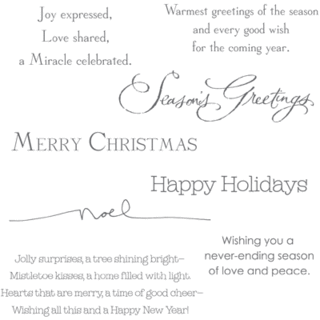 Joy expressed,
Love shared,
a Miracle celebrated.
Warmest greetings of the season
and every good wish
for the coming year.
Season's Greetings
MERRY CHRISTMAS
Happy Holidays
noel
Wishing you a
never-ending season
of love and peace.
Jolly surprises, a tree shining bright—
Mistletoe kisses, a home filled with light.
Hearts that are merry, a time of good cheer—
Wishing all this and a Happy New Year!